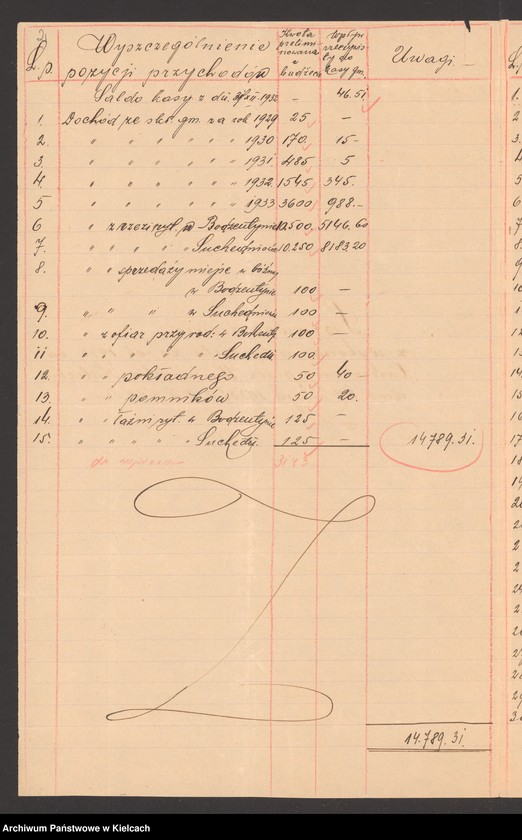 L.p. Wyszczególnienie pozycji przychodów Kwota prelimi-nowana w budżecie Wpł. rzeczywis-ty do kasy gm. Uwagi
Saldo kasy z dn. 31/XII-1932 – 46.51
1. Dochód ze skł. gm. za rok 1929 25 –
2. " " " " " " 1930 170. 15-
3 " " " " " " 1931 485 5
4. " " " " " " 1932 1545 345.
5 " " " " " " 1933 3600 988.-
6 " z rzezi ryt. w Bodzentynie 12500, 5146.60
7. " " " " Suchedniowie 10.250 8183.20
8. " " sprzedaży miejsc w bóżnicy
w Bodzentynie 100 –
9 " " " " w Suchedniowie 100 –
10. " z ofiar przy rod: w Bodzenty 100 –
11 " " " " " Suched. 100
12. " " pokładnego 50 40 –
13. " " pomników 50 20.
14. " " Łaźni ryt. w Bodzentynie 125 –
15. " " " " " Suched. 125 – 14789.31.
14.789.31.
Archiwum Państwowe w Kielcach